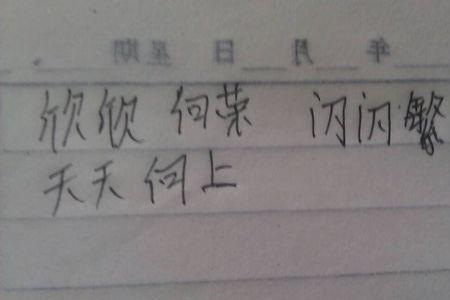 年 月 日 星期
欣欣 向荣 闪闪繁
天天 向上